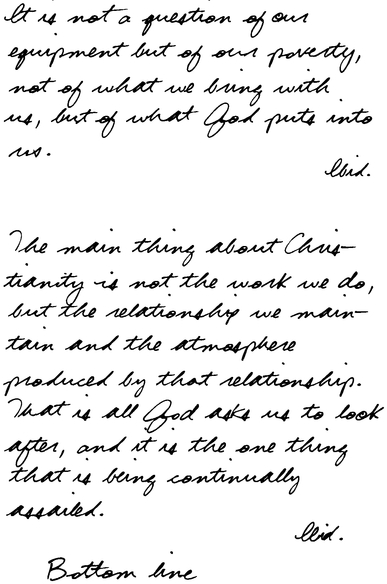 It is not a question of our
equipment but of our poverty,
not of what we bring with
us, but of what God puts into
us.
Ibid.
The main thing about Chris-
tianity is not the work we do,
but the relationship we main-
tain and the atmosphere
produced by that relationship.
That is all God asks us to look
after, and it is the one thing
that is being continually
assailed.
Ibid.
Bottom line